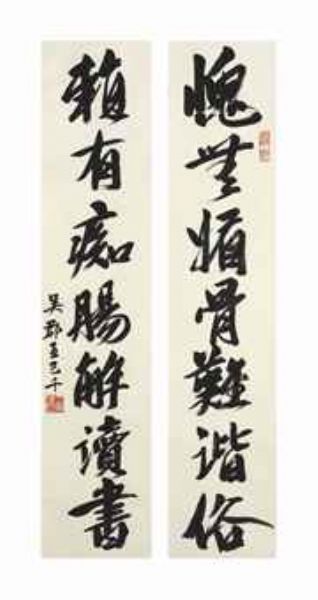 愧無媚骨難諧俗
賴有痴腸解讀書
吳郡王己千